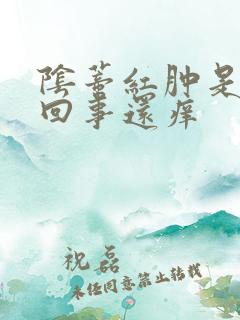 陰蒂紅肿是
回事還痒
祝磊
未经同意禁止转载